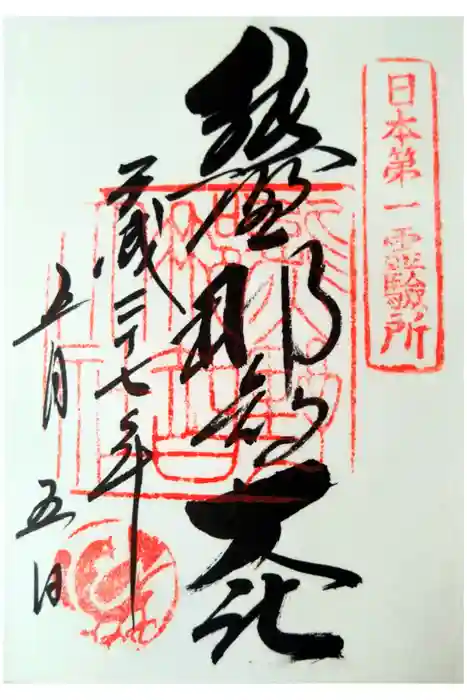 日本第一霊験所
熊野那智大社
平成二十七年
五月五日